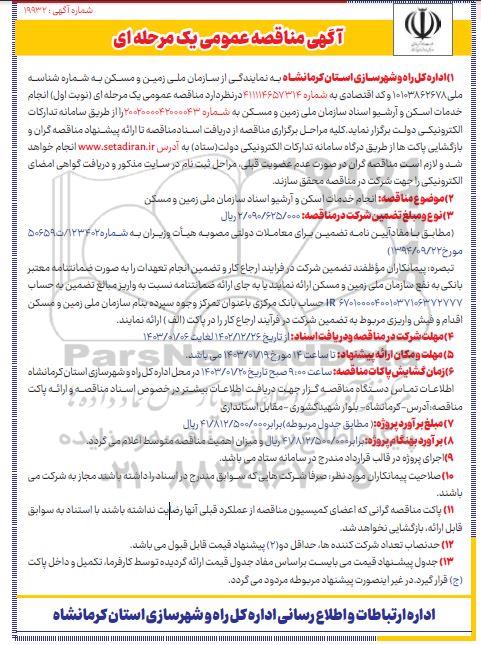 شماره آگهی : ۱۹۹۳۲
آگهی مناقصه عمومی یک مرحله ای
۱)اداره کل راه و شهرسازی استان کرمانشاه به نمایندگی از سازمان ملی زمین و مسکن به شماره شناسه
ملی۱۰۱۰۳۸۶۲۶۷۸ و کد اقتصادی به شماره ۴۱۱۱۱۴۶۵۷۳۱۴ درنظردارد مناقصه عمومی یک مرحله ای (نوبت اول) انجام
خدمات اسکن و آرشیو اسناد سازمان ملی زمین و مسکن به شماره ۲۰۰۲۰۰۰۰۴۲۰۰۰۰۴۳ را از طریق سامانه تدارکات
الکترونیکی دولت برگزار نماید.کلیه مراحل برگزاری مناقصه از دریافت اسنادمناقصه تا ارائه پیشنهاد مناقصه گران و
بازگشایی پاکت ها از طریق درگاه سامانه تدارکات الکترونیکی دولت(ستاد) به آدرس www.setadiran.ir انجام خواهد
شد و لازم است مناقصه گران در صورت عدم عضویت قبلی، مراحل ثبت نام در سایت مذکور و دریافت گواهی امضای
الکترونیکی را جهت شرکت در مناقصه محقق سازند.
۲)موضوع مناقصه: انجام خدمات اسکن و آرشیو اسناد سازمان ملی زمین و مسکن
۳)نوع و مبلغ تضمین شرکت در مناقصه: ۲/۰۹۰/۶۲۵/۰۰۰ ریال
(مطابق با مفادآیین نامه تضمین برای معاملات دولتی مصوبه هیأت وزیران به شماره۱۲۳۴۰۲/ت۵۰۶۵۹
مورخ۱۳۹۴/۰۹/۲۲)
تبصره: پیمانکاران مؤظفند تضمین شرکت در فرایند ارجاع کار و تضمین انجام تعهدات را به صورت ضمانتنامه معتبر
بانکی به نفع سازمان ملی زمین و مسکن ارائه نمایند یا به جای ارائه ضمانتنامه نسبت به واریز مبالغ تضمین به حساب
IR ۶۷۰۱۰۰۰۰۴۰۰۱۰۳۷۱۰۶۳۷۲۷۷۷ حساب بانک مرکزی باعنوان تمرکز وجوه سپرده بنام سازمان ملی زمین و مسکن
اقدام و فیش واریزی مربوط به تضمین شرکت در فرآیند ارجاع کار را در پاکت (الف ) ارائه نمایند.
۴)مهلت شرکت در مناقصه ودریافت اسناد : از تاریخ ۱۴۰۲/۱۲/۲۶ لغایت ۱۴۰۳/۰۱/۰۶
۵)مهلت ومکان ارائه پیشنهاد: تا ساعت ۱۴ مورخ ۱۴۰۳/۰۱/۱۹ می باشد.
۶)زمان گشایش پاکات مناقصه: ساعت ۹:۰۰ صبح تاریخ ۱۴۰۳/۰۱/۲۰ در محل اداره کل راه و شهرسازی استان کرمانشاه
اطلاعات تماس دستگاه مناقصه گزار جهت دریافت اطلاعات بیشتر در خصوص اسناد مناقصه و ارائه پاکت
مناقصه:آدرس-کرمانشاه- بلوار شهیدکشوری -مقابل استانداری
۷)مبلغ برآورد پروژه:( مطابق جدول مربوطه)برابر۴۱/۸۱۲/۵۰۰/۰۰۰ ریال
۸)برآورد بهنگام پروژه: برابر۴۱/۸۱۲/۵۰۰/۰۰۰ ریال و میزان اهمیت مناقصه متوسط اعلام می گردد.
۹)اجرای پروژه در قالب قرارداد مندرج در سامانه ستاد می باشد.
۱۰)صلاحیت پیمانکاران مورد نظر: صرفا شرکت هایی که سوابق مندرج در اسناد را داشته باشند مجاز به شرکت می
باشند.
۱۱) پاکت مناقصه گرانی که اعضای کمیسیون مناقصه از عملکرد قبلی آنها رضایت نداشته باشند با استناد به سوابق
قابل ارائه، بازگشایی نخواهد شد.
۱۲) حدنصاب تعداد شرکت کننده ها، حداقل دو(۲) پیشنهاد قیمت قابل قبول می باشد.
۱۳) جدول پیشنهاد قیمت می بایست براساس مفاد جدول قیمت ارائه گردیده توسط کارفرما، تکمیل و داخل پاکت
(ج) قرار گیرد.در غیر اینصورت پیشنهاد مربوطه مردود می گردد.
اداره ارتباطات و اطلاع رسانی اداره کل راه و شهرسازی استان کرمانشاه